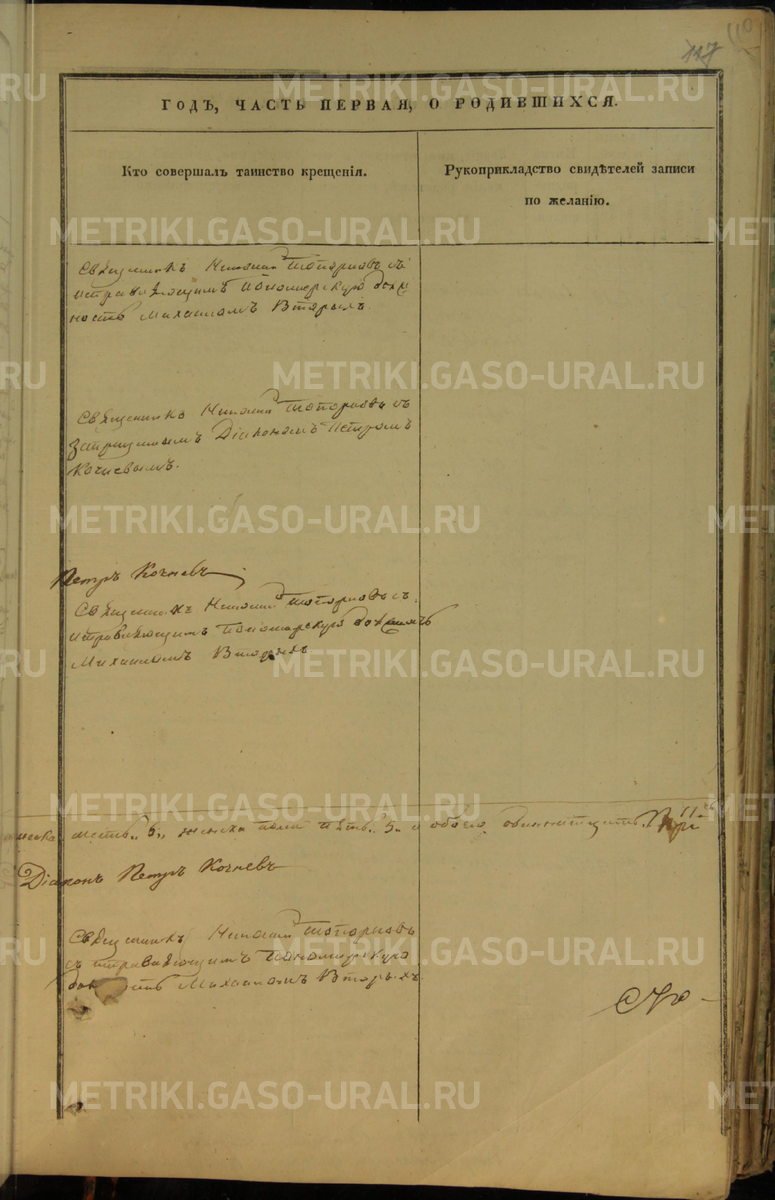 117
110
ГОДЪ, ЧАСТЬ ПЕРВАЯ, О РОДИВШИХСЯ.
Кто совершалъ таинство крещенія.
Рукоприкладство свидѣтелей записи
по желанію.
Священникъ Николай Топорковъ съ
исправляющимъ пономарскую долж
ность Михаиломъ Вторыхъ.
Священникъ Николай Топорковъ съ
запрещеннымъ Діакономъ Петромъ
Кочневымъ.
Петръ Кочневъ
Священникъ Николай Топорковъ съ
исправляющимъ пономарскую должность
Михаиломъ Вторыхъ
шесть „6„ женска пола пять „5„ и обоего одиннатцать 11
Діаконъ Петръ Кочневъ
Священникъ Николай Топорковъ
съ исправляющимъ пономарскую
Михаиломъ Вторыхъ.
METRIKI.GASO-URAL.RU